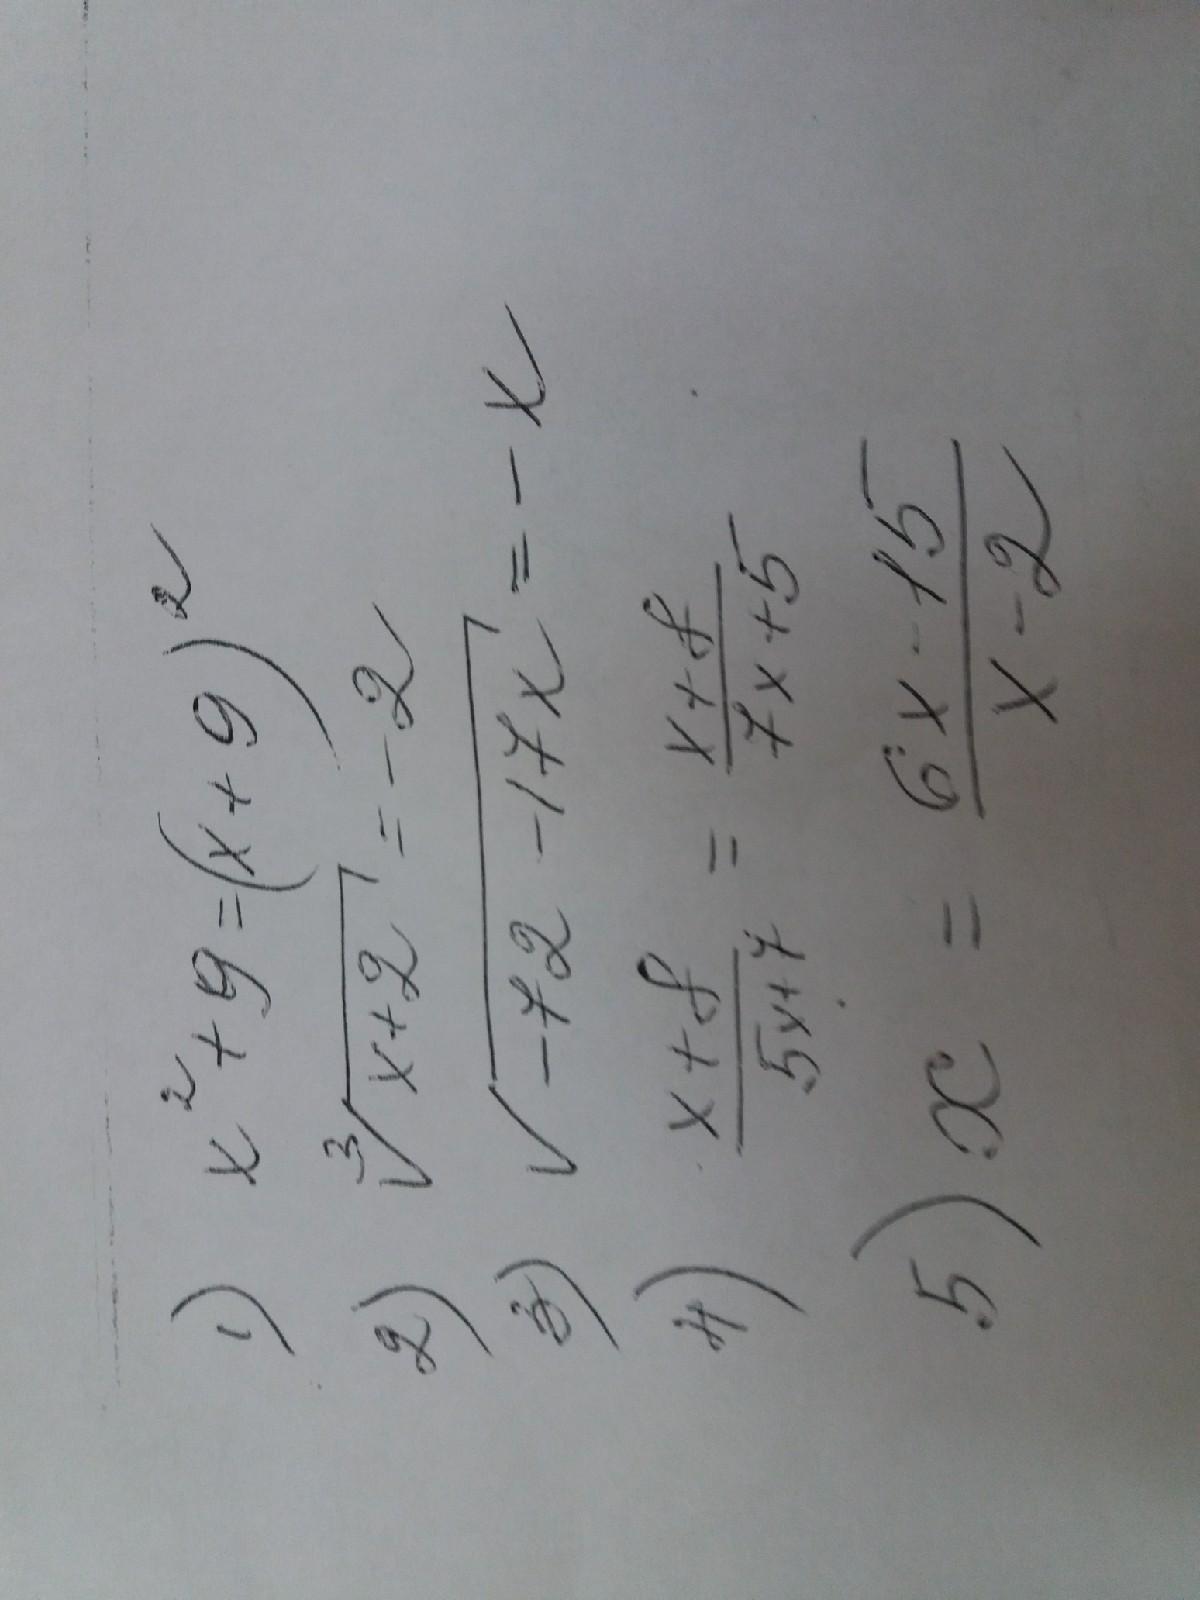 1) x² + 9 = (x + 9)²
2) ∛(x+2) = -2
3) √(-72 - 17x) = -x
4) (x+8)/(5x+7) = (x+8)/(7x+5)
5) x = (6x - 15)/(x - 2)